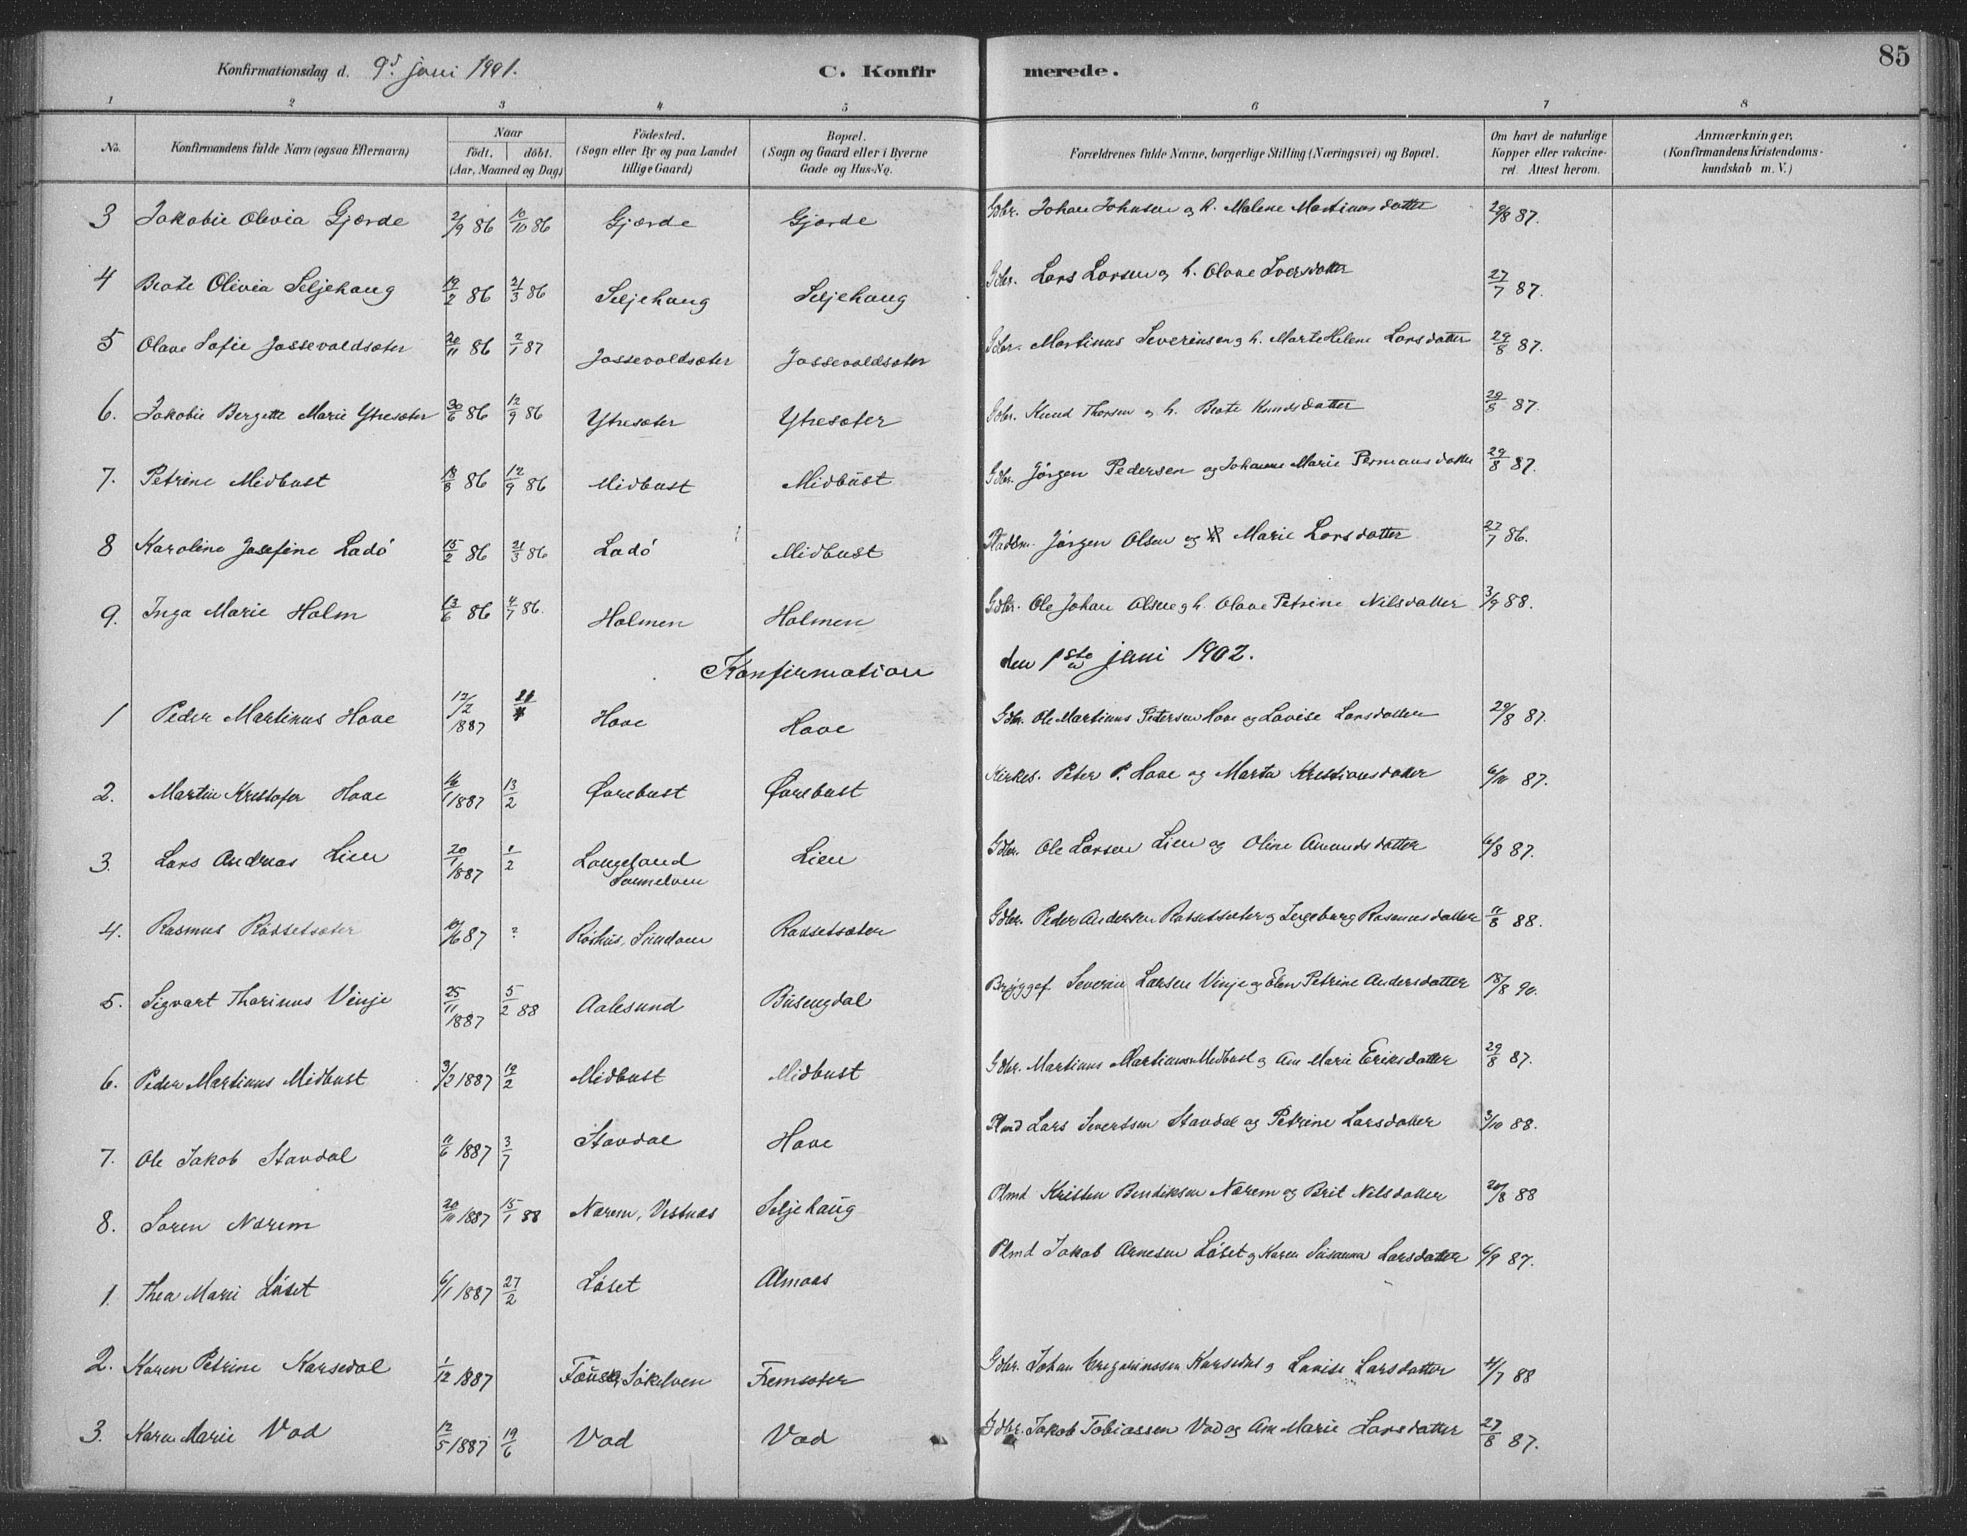 Konfirmationsdag d. 9d juni 1901. C. Konfirmerede. 85
1 2 3 4 5 6 7 8
No. Konfirmandens fulde Navn (ogsaa Efternavn) Naar födt. döbt. (Aar, Maaned og Dag) Födested. (Sogn eller By og paa Landet tillige Gaard) Bopæl. (Sogn og Gaard eller i Byerne Gade og Hus-No. Forældrenes fulde Navne, borgerlige Stilling (Næringsvei) og Bopæl. Om havt de naturlige Kopper eller vakcineret. Attest herom. Anmærkninger. (Konfirmandens Kristendomskundskab m. V.)
3 Jakobie Olivia Gjærde 2/9 86 10/10 86 Gjærde Gjærde Gdbr. Johan Johnsen og h. Malene Martinusdatter 29/8 87.
4 Beate Olivia Seljehaug 19/2 86 21/3 86 Seljehaug Seljehaug Gdbr. Lars Larsen og h. Olave Iversdatter 27/7 87.
5 Olave Sofie Jossevoldsæter 20/11 86 2/1 87 Jossevoldsæter Jossevoldsæter Gdbr. Martinus Severinsen og h. Marte Helene Larsdatter 29/8 87.
6. Jakobie Bergitte Marie Ytresæter 30/6 86 12/9 86 Ytresæter Ytresæter Gdbr. Knud Thorsen og h. Beate Knudsdatter 29/8 87.
7. Petrine Midbust 18/8 86 12/9 86 Midbust Midbust Gdbr. Jørgen Pedersen og Johanne Marie Permansdatter 29/8 87.
8 Karoline Josefine Ladö 15/2 86 21/3 86 Ladö Midbust Pladsm. Jørgen Olsen og Marie Larsdatter 27/7 86.
9. Inga Marie Holm 13/6 86 4/7 86. Holmen Holmen Gdbr. Ole Johan Olsen og h. Olave Petrine Nilsdatter 3/9 88.
Konfirmation den 1ste juni 1902.
1 Peder Martinus Hove 12/2 1887 Hove Hove Gdbr. Ole Martinus Petersen Hove og Lovise Larsdatter 29/8 87.
2. Martin Kristofer Hove 16/1 1887 13/2 Ørebust Ørebust Kirkes. Peter P. Hove og Marta Kristiansdatter 6/10 87.
3. Lars Andreas Lien 20/1 1887 1/2 Langeland Lien Gdbr. Ole Larsen Lien og Oline Amundsdatter 6/8 87.
4. Rasmus Rödsetsæter 10/6 87 ? Røshus, Sundalen Rødsetsæter Gdbr. Peder Andersen Rødsetsæter og Ingeborg Rasmusdatter 11/8 88.
5. Sigvart Thorinus Vinje 25/11 1887 5/2 88 Aalesund Busengdal Bryggef. Severin Larsen Vinje og Elen Petrine Andersdatter 18/8 90.
6. Peder Martinus Midbust 3/2 1887 19/2 Midbust Midbust Gdbr. Martinus Martinussen Midbust og Ane Marie Eriksdatter 29/8 87.
7. Ole Jakob Stavdal 11/6 1887 3/7 Stavdal Hove Plmd Lars Sivertsen Stavdal og Petrine Larsdatter 3/10 88.
8. Søren Nærem 20/11 1887 15/1 88 Nærem, Vestnæs Seljehaug Plmd Kristen Bendiksen Nærem og Brit Nilsdatter 20/8 88
1. Thea Marie Løset 6/1 1887 27/2 Løset Almaas Plmd Jakob Arnesen Løset og Karen Susanna Larsdatter 6/9 87.
2. Karen Petrine Karsedal 1/12 1887 Søkelven Fremsæter Gdbr. Johan Gregoriussen Karsedal og Lovise Larsdatter 4/7 88
3. Karen Marie Vad 12/5 1887 19/6 Vad Vad Gdbr. Jakob Tobiassen Vad og Ane Marie Larsdatter 27/8 87.